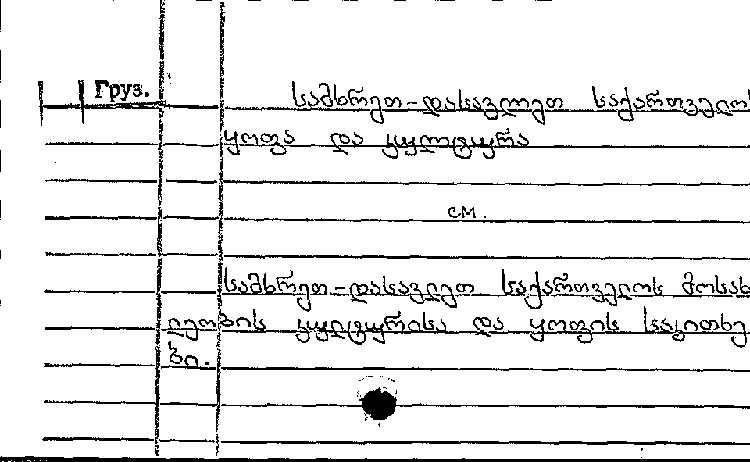 Груз.
სამხრეთ-დასავლეთ საქართველოს
ყოფა და კულტურა
см.
სამხრეთ-დასავლეთ საქართველოს მოსახ
ლეობის კულტურისა და ყოფის საკითხე
ბი.